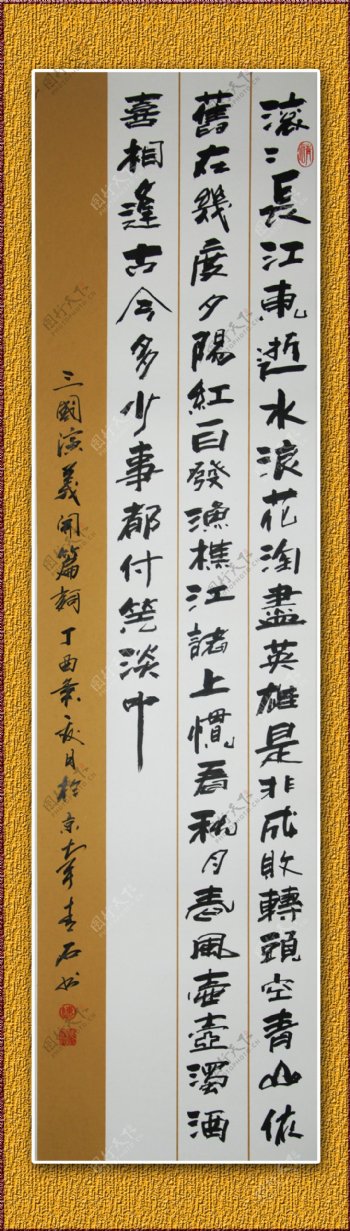 滚〻長江東逝水浪花淘盡英雄是非成敗轉頭空青山依
舊在幾度夕陽紅白發漁樵江諸上慣看秋月春風壹壺濁酒
喜相逢古今多少事都付笑淡中
三國演義開篇詞丁酉年夏月於京華青石书